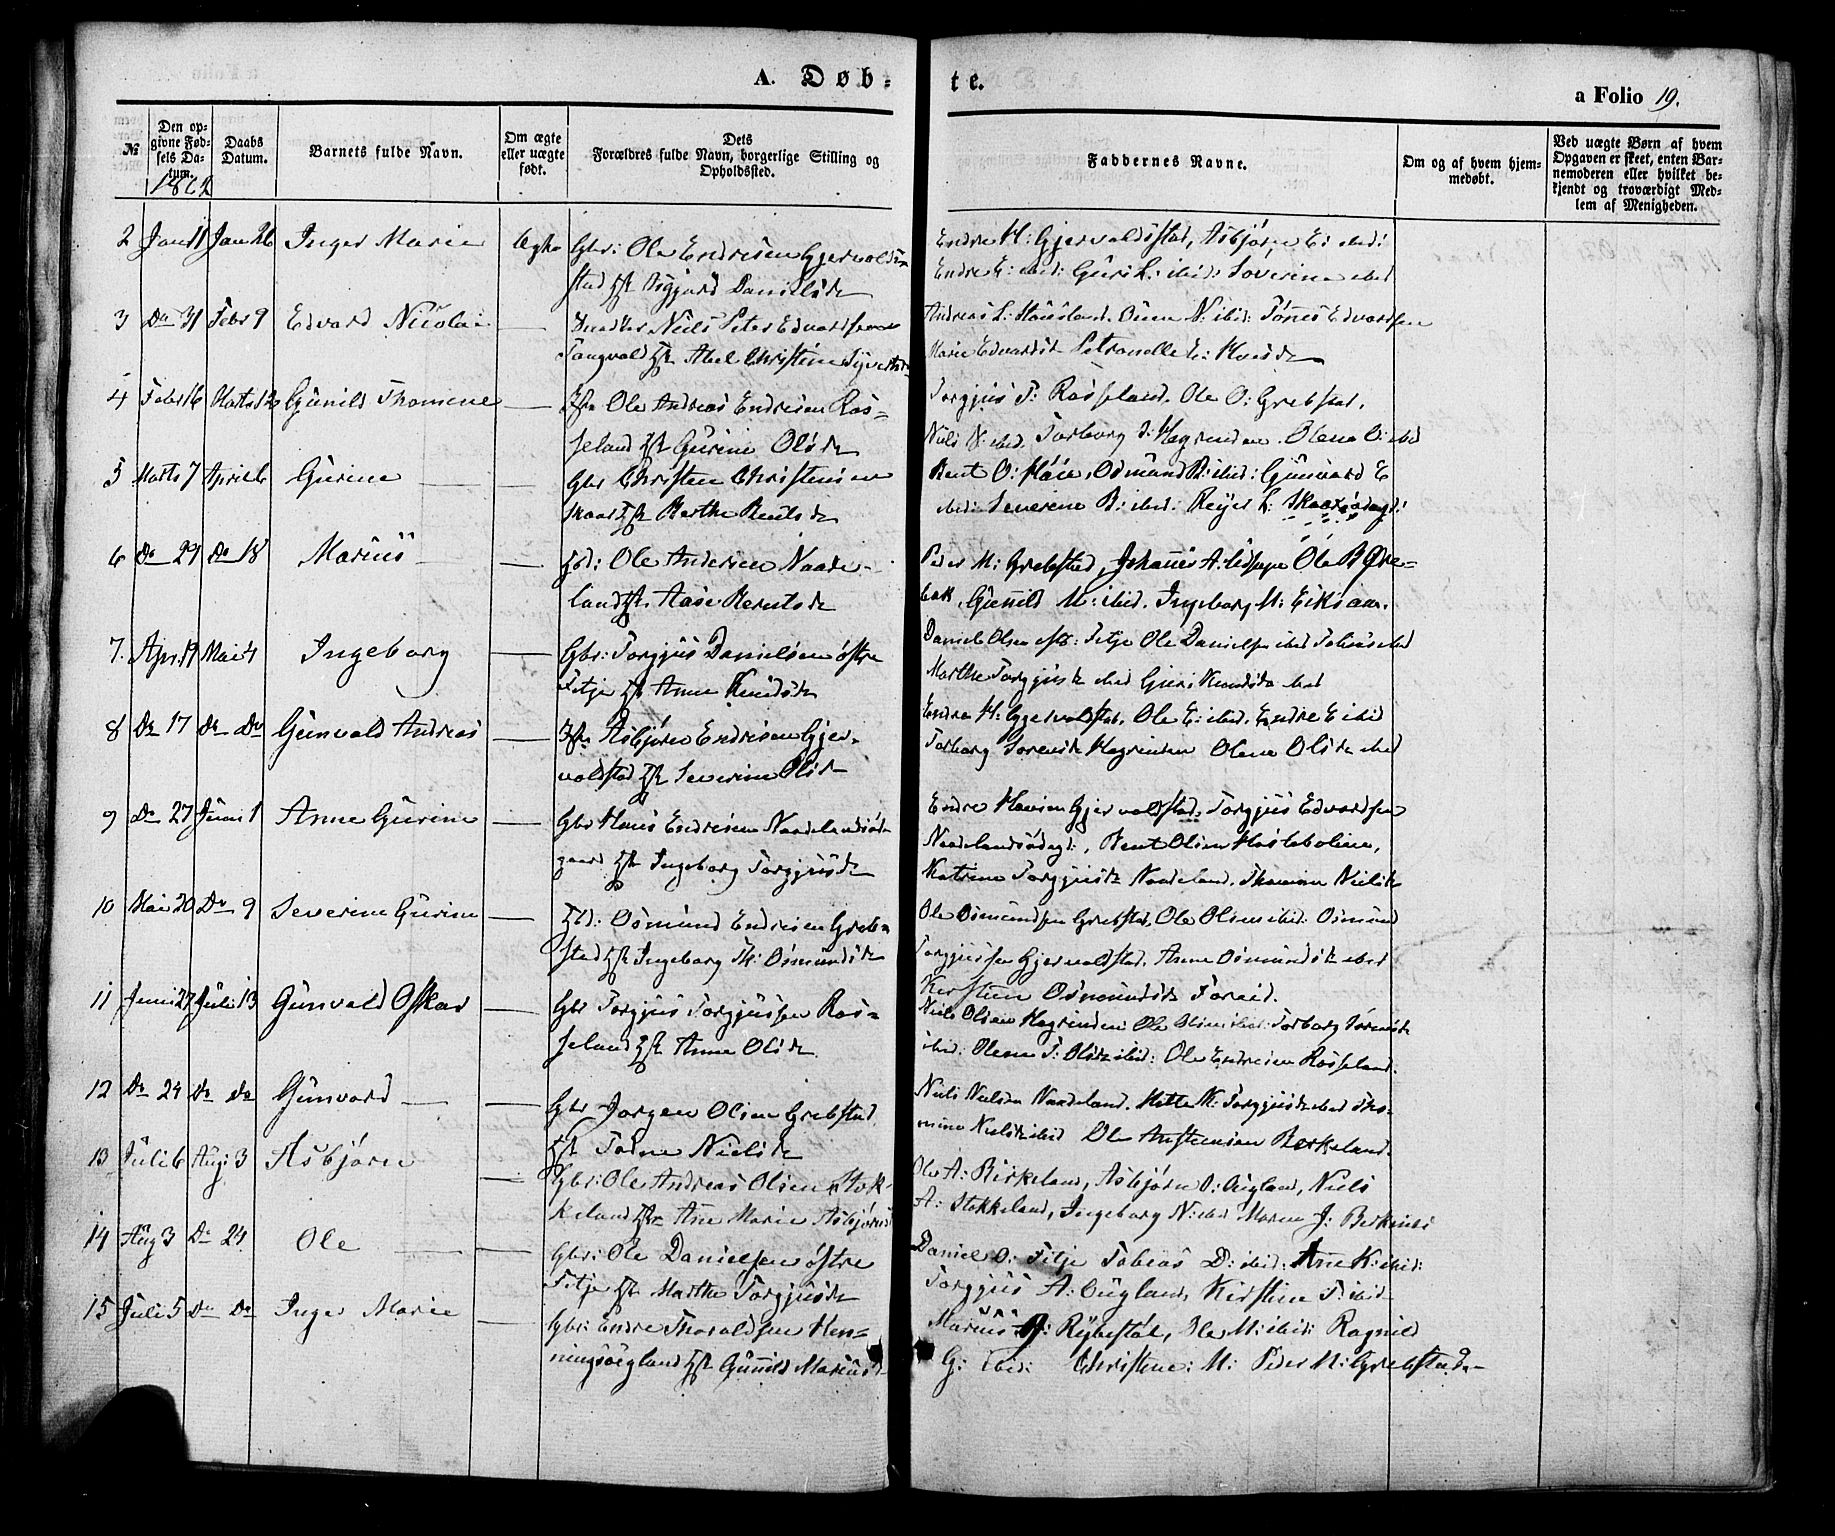 A. Døb-
te.
a Folio 19.
№
Den op-
givne Fød-
sels Da-
tum.
1862
Daabs
Datum.
Barnets fulde Navn.
Om ægte
eller uægte
født.
Dets
Forældres fulde Navn, borgerlige Stilling og
Opholdssted.
Faddernes Navne.
Om og af hvem hjem-
medøbt.
Ved uægte Børn af hvem
Opgaven er skeet, enten Bar-
nemoderen eller hvilket be-
kjendt og troværdigt Med-
lem af Menigheden.
2 Jan 11 Jan 26 Inger Marie Ægte Gbr: Ole Endresen Gjervolds-
stad Hst Asgjerd Danielsd
Endre H: Gjervoldstad, Asbjørn E: ibid:
Endre E: ibid: Guri L: ibid: Severine ibid
3 Do 31 Febr 9 Edvard Nicolai — Niels Peter Edvardsen
Tangvald Hst Abel Christine Syvertsd
Andreas L: ibid: Tønes Edvardsen
Marie Edvardsd Petronelle E:
4 Febr 16 Marts 12 Gunild Thomine — Ole Andreas Endresen Ros-
seland Hst Gurine Olsd
Torgjus T: Rosseland. Ole O: Grebstad,
Niels N: ibid. Torborg S: Hægrinden. Olene O: ibid
5 Marts 7 April 6 Gurine — — Gbr Christen Christensen
Skaar Hst Berthe Bentsd
Bent O: Odmund B: ibid: Gunvard E
ibid: Severine B: ibid: Reijer L: Skaarsødegd:
6 Do 29 Do 18 Marius — — Ole Andersen Naade-
land Hst. Aase Berntsd
Peder M: Grebstad, Johannes A: Ole B Øre-
bek, Gunild M: ibid. Ingeborg M: Eiksaa.
7. Apr. 19 Mai 4 Ingeborg — Gbr: Torgjus Danielsen østre
Fitje Hst Anne Knudsd
Daniel Olsen øst: Fitje Ole Danielsen ibid Tobias ibid
Marthe Torgjusd ibid Guri Knudsd ibid
8 Do 17 Do Do Gunvald Andreas — Asbjørn Endresen Gjer-
voldstad Hst Severine Olsd
Endre H: Gjervoldstad, Ole E: ibid. Endre E ibid
Torborg Sørensd Hægrinden Olene Olsd ibid
9 Do 27 Juni 1 Anne Gurine — Gbr Hans Endresen Naadelandsød-
gaard Hst Ingeborg Torgjusd
Endre Hansen Gjervoldstad, Torgjus Edvardsen
Naadelandsødegd:, Bent Olsen
Katrine Torgjusd Naadeland. Thomine Nielsd
10 Mai 20 Do 9 Severine Gurine — Osmund Endresen Greb-
stad Hst Ingeborg Th: Osmundsd
Ole Osmundsen Grebstad, Ole Olsen ibid: Osmund
Torgjussen Gjervoldstad. Anne Osmundsd ibid
Kirstine Osmundsd
11 Juni 27 Juli 13 Gunvald Oskar — Gbr Torgjus Torgjussen Ros-
seland Hst Anne Olsd
Niels Olsen Hægrinden Ole Olsen ibid: Torborg Sørensd
ibid: Olene T: Olsd ibid: Ole Endresen Rosseland.
12 Do 24 Do Do Gunvord — — Gbr Jørgen Olsen Grebstad
Hst Todne Nielsd
Niels Nielsen Naadeland. Mette M: Torgjusd ibid Tho-
mine Nielsd ibid Ole Anstensen Berkeland.
13 Juli 6 Aug: 3 Asbjørn — Gbr: Ole Andreas Olsen Stok-
keland Hst Ane Marie Asbjørnsd
Ole A: Birkeland, Asbjørn O: Øigland, Niels
A: Stokkeland, Ingeborg N: ibid Maren J:
14 Aug 3 Do 24 Ole — — Gbr: Ole Danielsen østre
Fitje Hst Marthe Torgjusd
Daniel O: Fitje Tobias D: ibid: Ane K: ibid:
Torgjus A: Øigland, Kirstine T: ibid
15 Juli 5 Do Do Inger Marie — Gbr: Endre Thoraldsen Hen-
ningsøigland Hst Gunild Mariusd
Marius J: Rybestøl, Ole M: ibid: Ragnild
G: ibid: Christene: M: Peder M: Grebstad